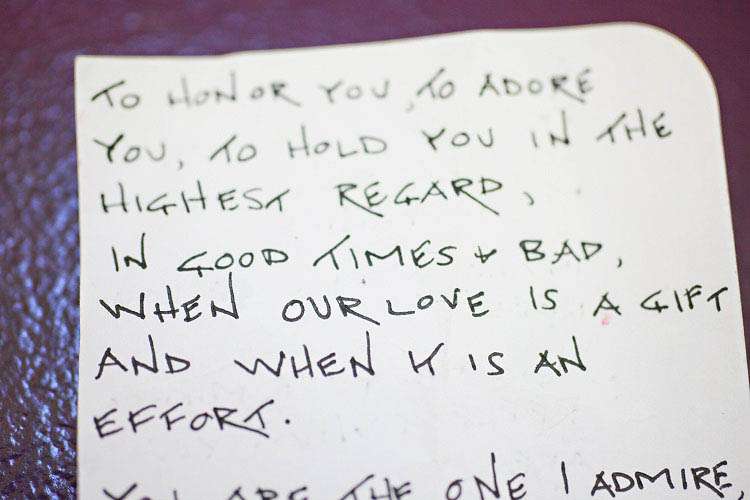 TO HONOR YOU, TO ADORE
YOU, TO HOLD YOU IN THE
HIGHEST REGARD,
IN GOOD TIMES & BAD,
WHEN OUR LOVE IS A GIFT
AND WHEN IT IS AN
EFFORT.
YOU ARE THE ONE I ADMIRE